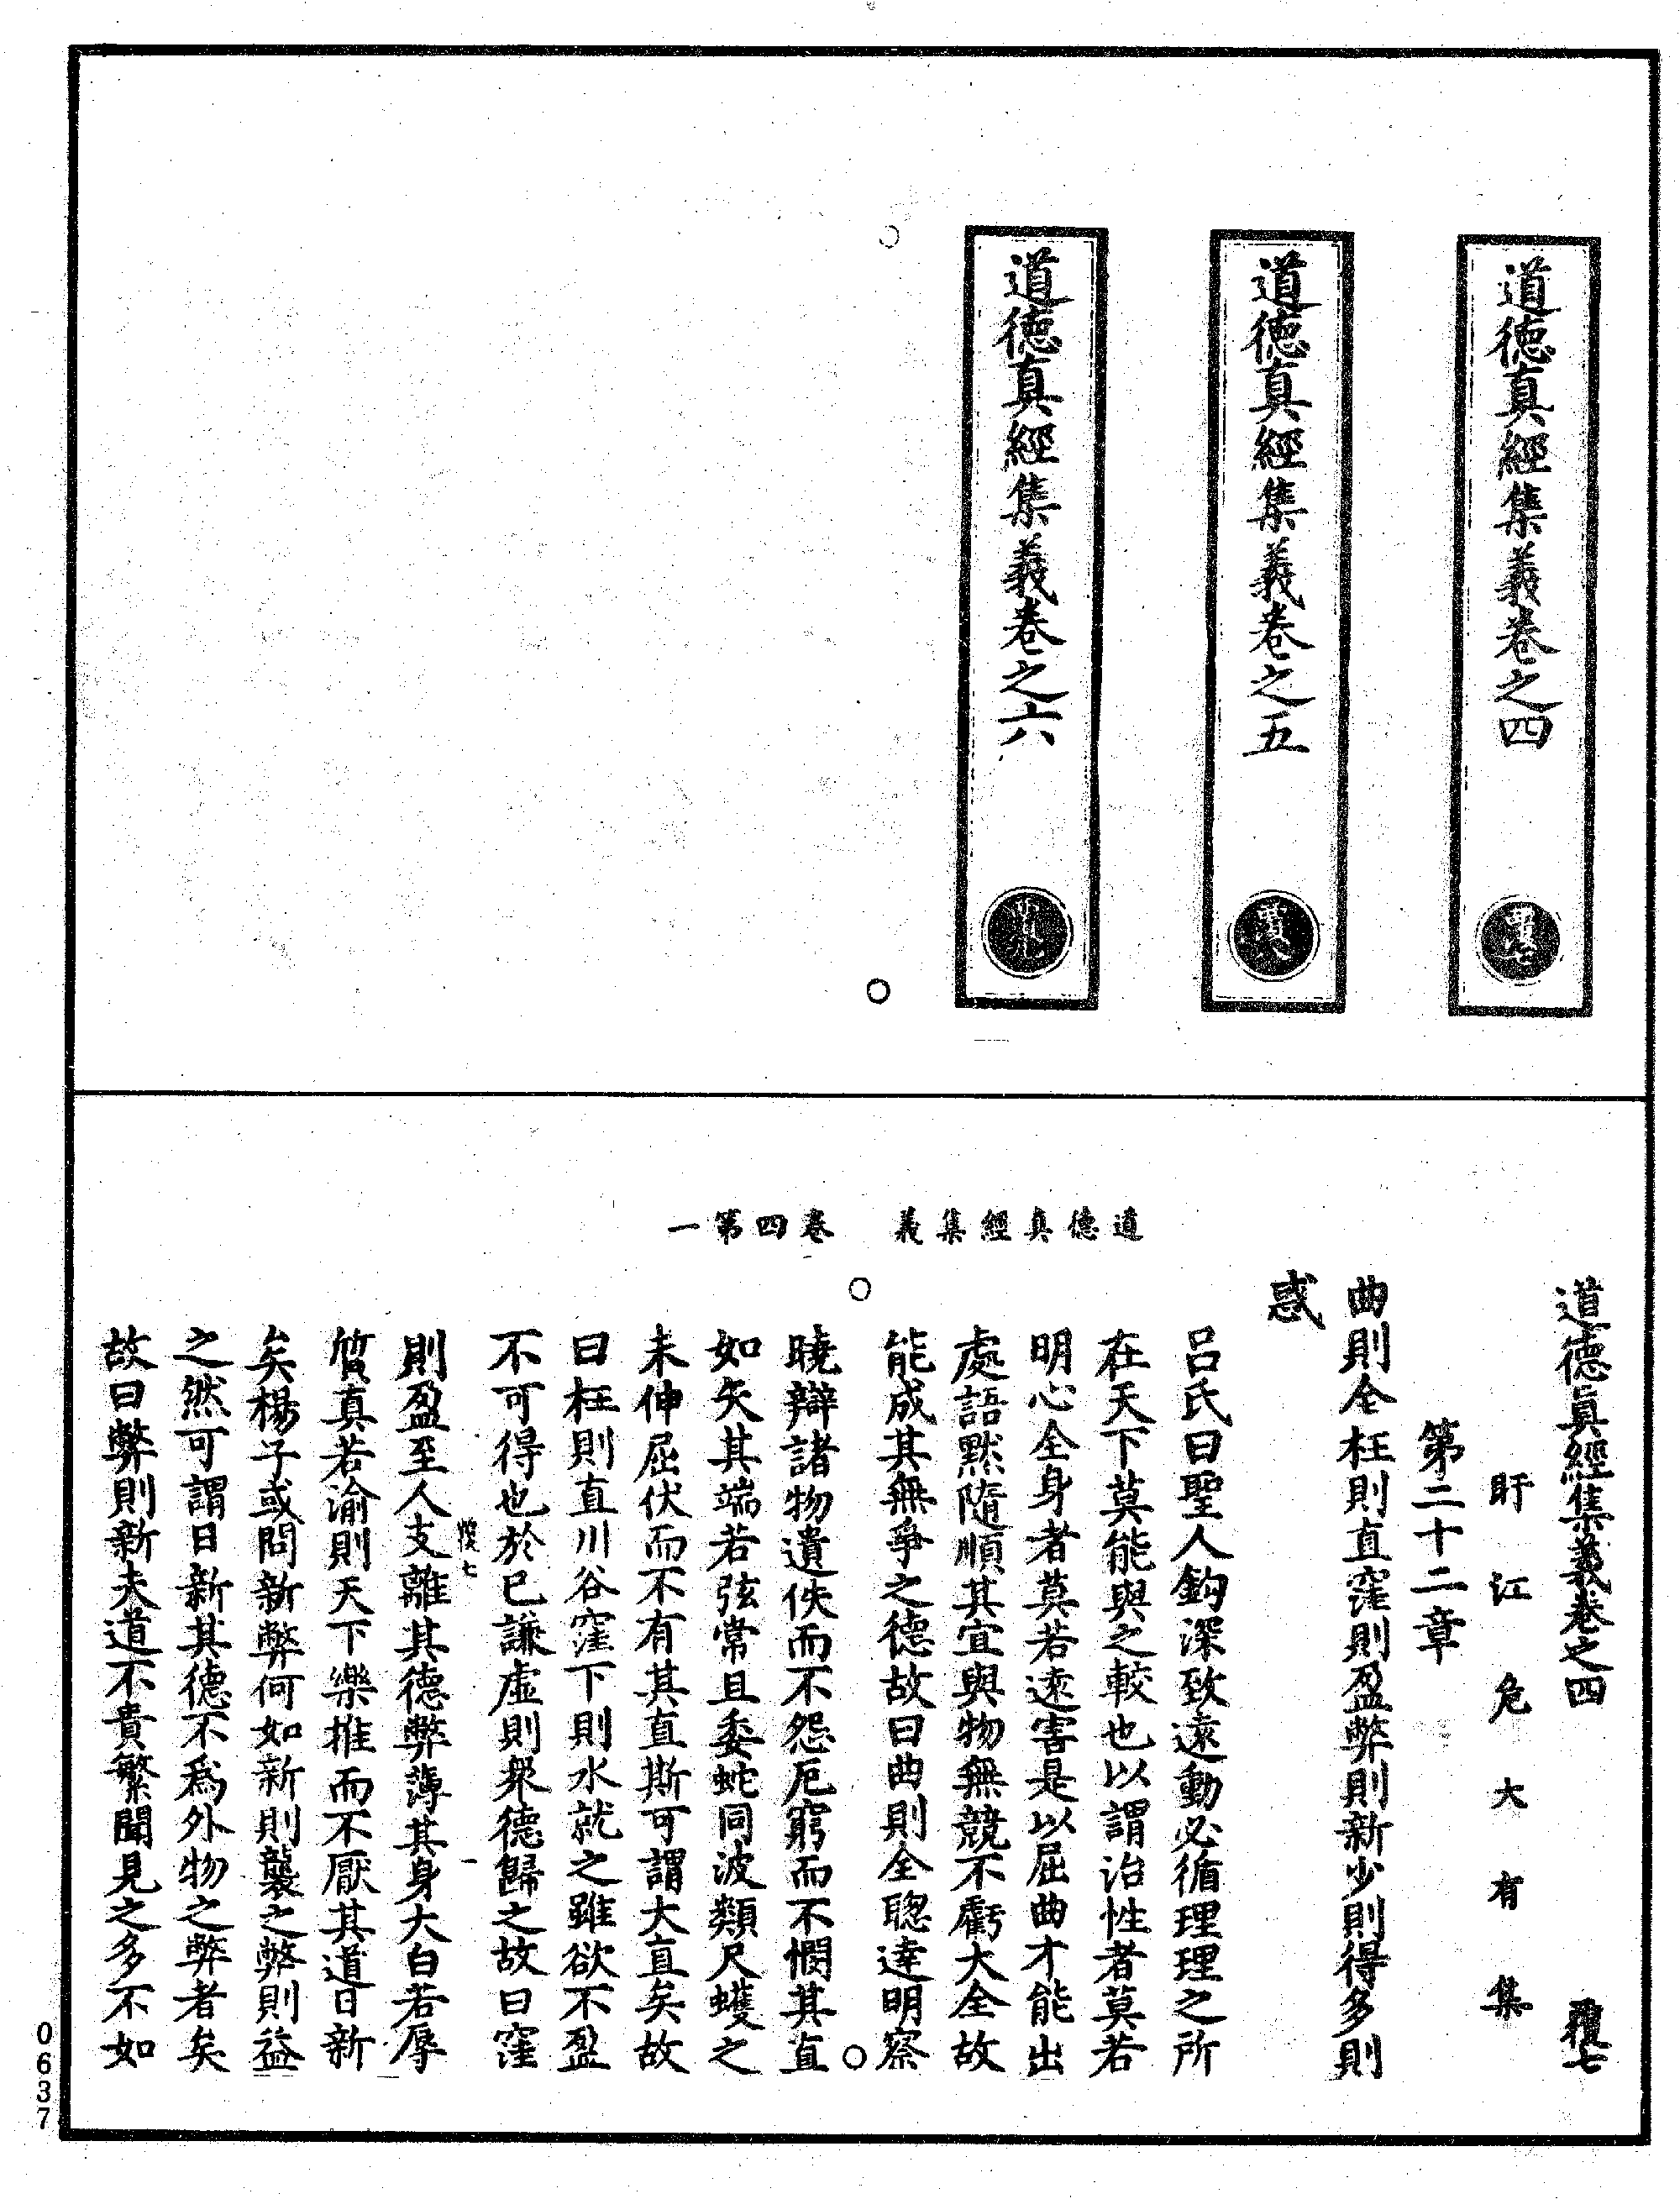 道德真經集義卷之四
道德真經集義卷之五
道德真經集義卷之六
道德真經集義　卷四第一
道德眞經集義卷之四
盱江危大有集
第二十二章
曲則全枉則直窪則盈弊則新少則得多則
惑
呂氏曰聖人鈎深致遠動必循理理之所
在天下莫能與之較也以謂治性者莫若
明心全身者莫若遠害是以屈曲才能出
處語默隨順其宜與物無競不虧大全故
能成其無爭之德故曰曲則全聰達明察
曉辯諸物遺佚而不怨厄窮而不憫其直
如矢其端若弦常且委蛇同波類尺蠖之
未伸屈伏而不有其直斯可謂大直矣故
曰枉則直川谷窪下則水就之雖欲不盈
不可得也於已謙虛則衆德歸之故曰窪
則盈至人支離其德弊薄其身大白若辱
質真若渝則天下樂推而不厭其道日新
矣楊子或問新弊何如新則襲之弊則益
之然可謂日新其德不為外物之弊者矣
故曰弊則新夫道不貴繁聞見之多不如
0637